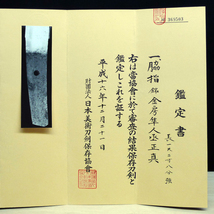 鑑定書
一、脇指 銘 金房隼人丞正真
長 一尺
右は當協會に於て審査の結果保存刀剣と
鑑定しこれを証する
平成十六年十二月二十一日
財團法人日本美術刀剣保存協會